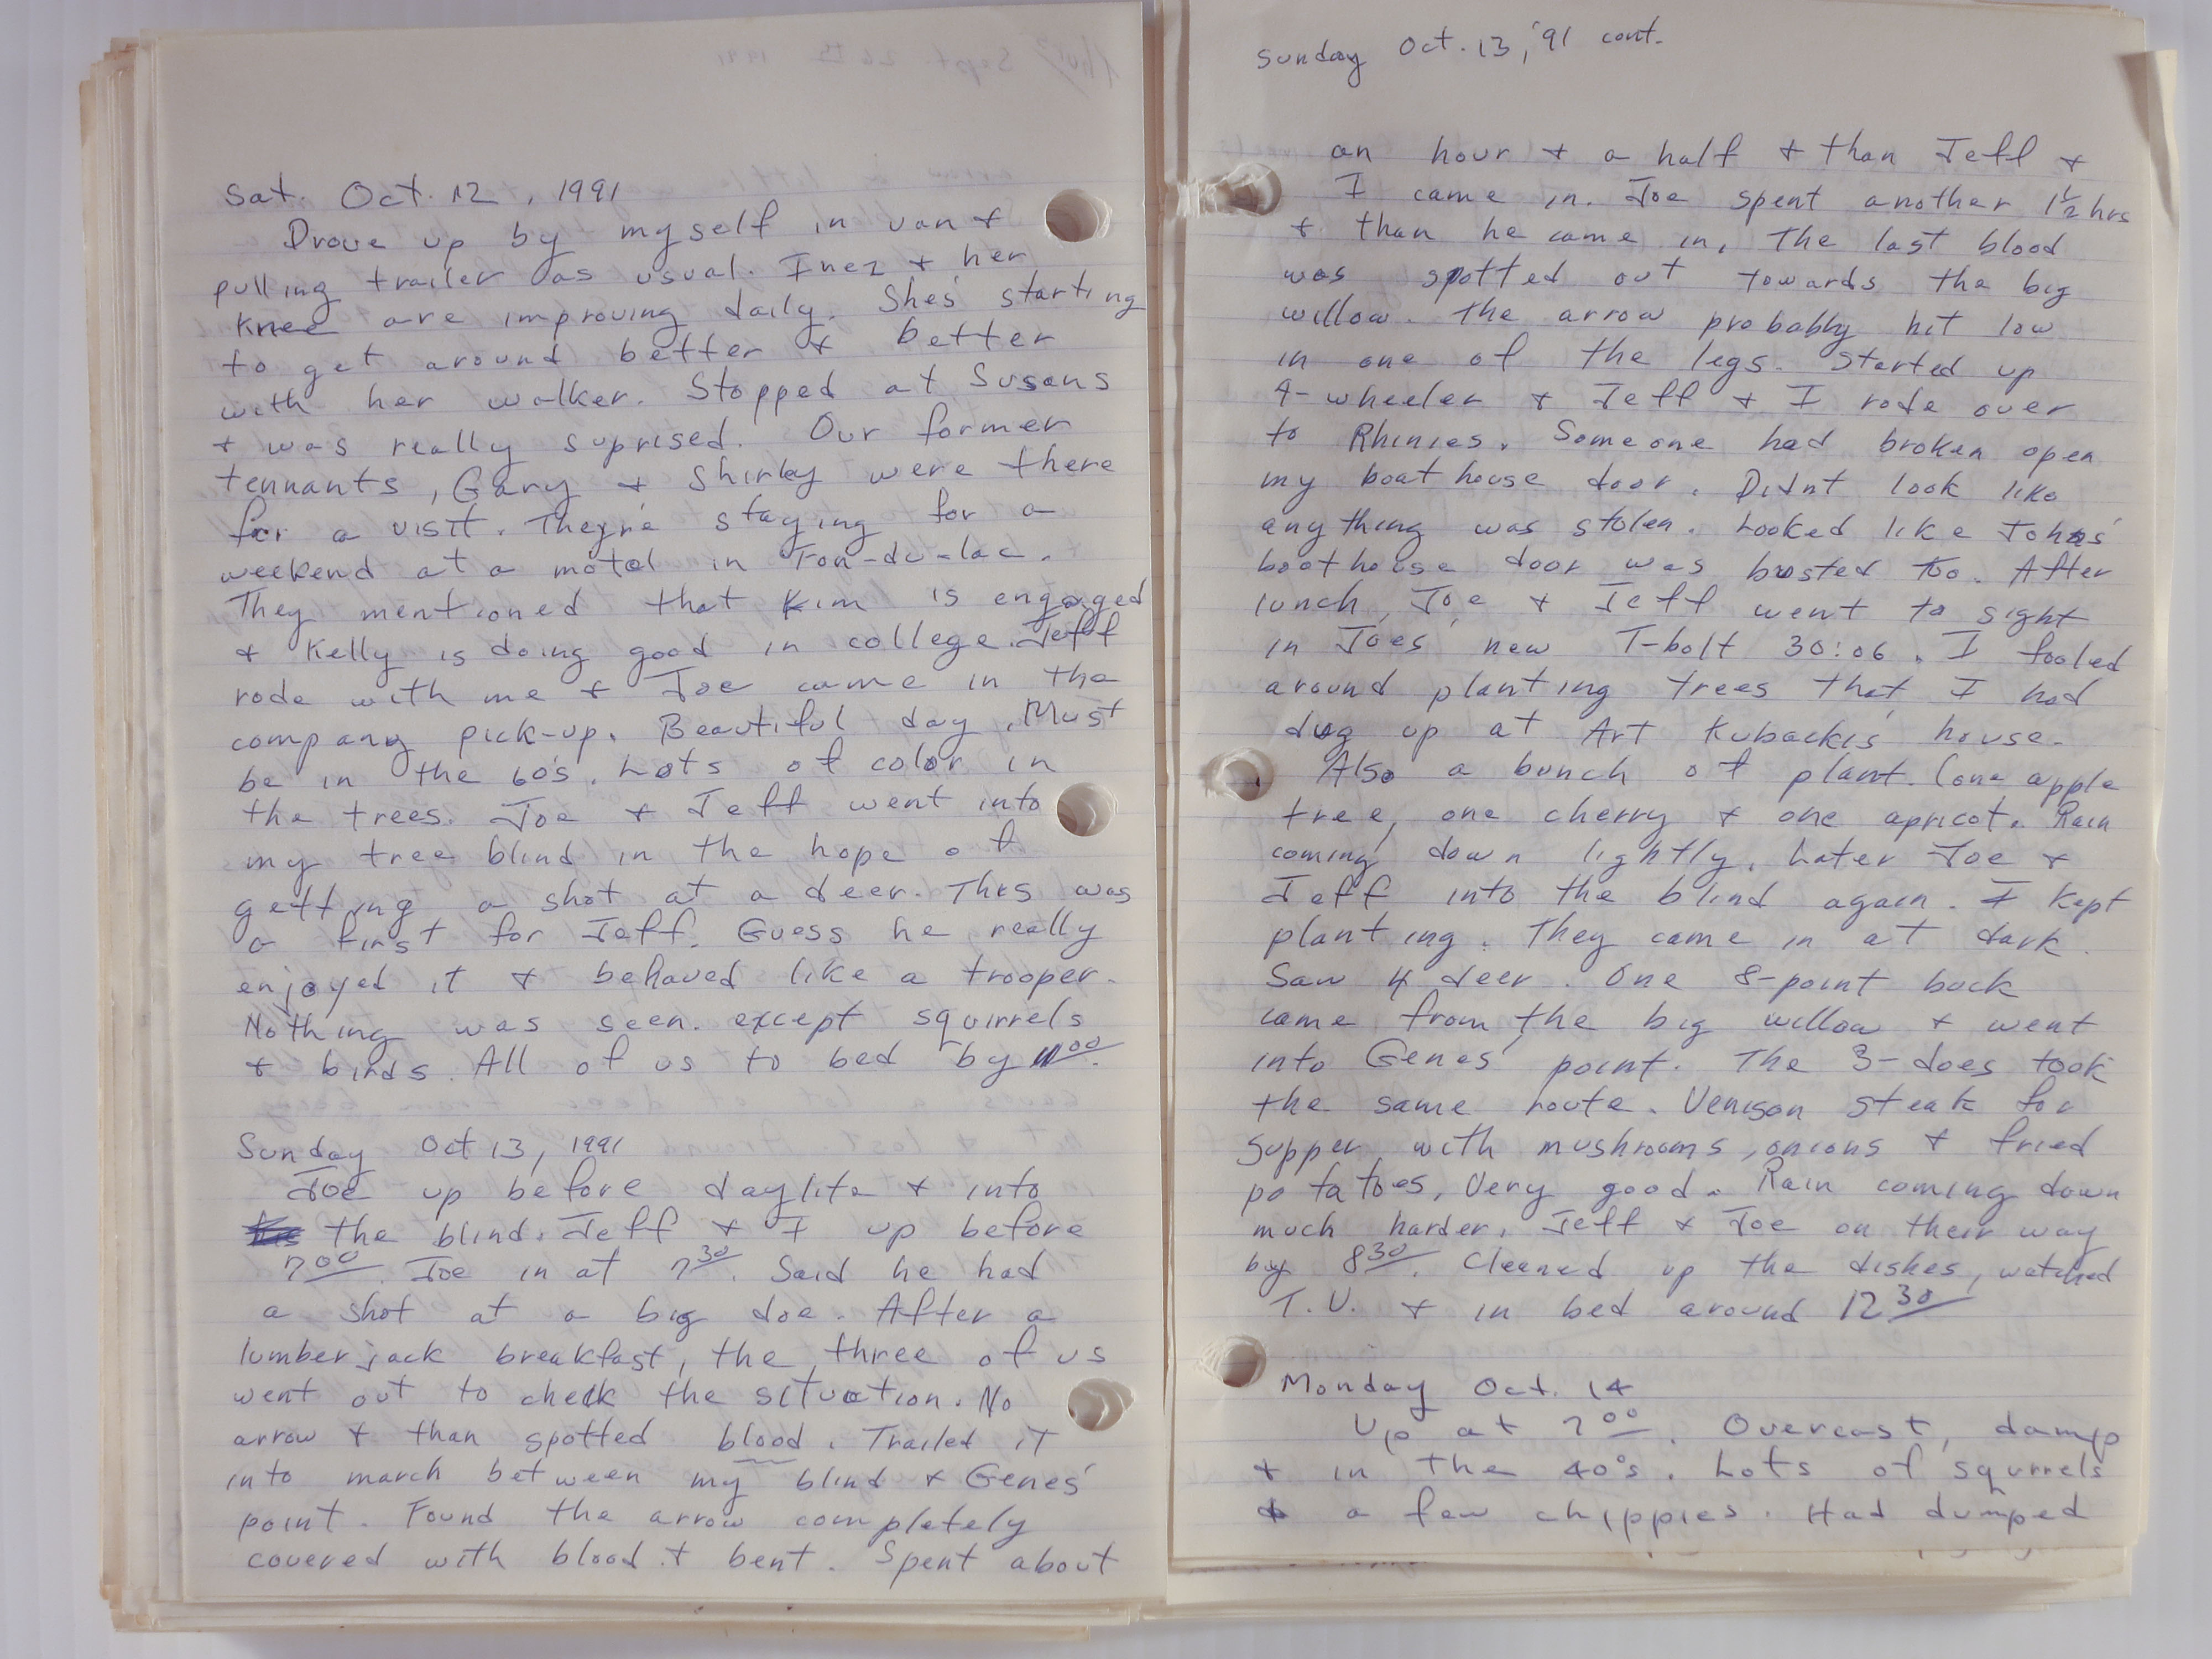 Sat. Oct. 12, 1991
Drove up by myself in van +
pulling trailer as usual. Inez + her
knee are improving daily. She's starting
to get around better + better
with her walker. Stopped at Susans
+ was really suprised. Our former
tennants, Gary + Shirley were there
for a visit. They're staying for a
weekend at a motel in Fon-du-lac.
They mentioned that Kim is engaged
+ Kelly is doing good in college. Jeff
rode with me + Joe came in the
company pick-up. Beautiful day. Must
be in the 60's. Lots of color in
the trees. Joe + Jeff went into
my tree blind in the hope of
getting a shot at a deer. This was
a first for Jeff. Guess he really
enjoyed it + behaved like a trooper.
Nothing was seen. except squirrels
+ birds. All of us to bed by 11 00.
Sunday Oct 13, 1991
Joe up before daylite + into
the blind. Jeff + I up before
7 00. Joe in at 7 30. Said he had
a shot at a big doe. After a
lumber jack breakfast, the three of us
went out to check the situation. No
arrow + than spotted blood. Trailed it
into march between my blind + Genes'
point. Found the arrow completely
covered with blood + bent. Spent about
Sunday Oct. 13, '91 cont.
an hour + a half + than Jeff +
I came in. Joe spent another 1½ hrs
+ than he came in. The last blood
was spotted out towards the big
willow. The arrow probably hit low
in one of the legs. Started up
4-wheeler + Jeff + I rode over
to Rhinies. Someone had broken open
my boathouse door. Didnt look like
anything was stolen. Looked like Johns'
boathouse door was busted too. After
lunch, Joe + Jeff went to sight
in Joes' new T-bolt 30:06. I fooled
around planting trees that I had
dug up at Art Kubackis' house.
Also a bunch of plant. (one apple
tree, one cherry + one apricot. Rain
coming down lightly. Later Joe +
Jeff into the blind again. I kept
planting. They came in at dark.
Saw 4 deer. One 8-point buck
came from the big willow + went
into Genes' point. The 3-does took
the same route. Venison steak for
supper with mushrooms, onions + fried
potatoes. Very good. Rain coming down
much harder. Jeff + Joe on their way
by 8 30. Cleaned up the dishes, watched
T.V. + in bed around 12 30
Monday Oct. 14
Up at 7 00. Overcast, damp
+ in the 40's. Lots of squrrels
+ a few chippies. Had dumped